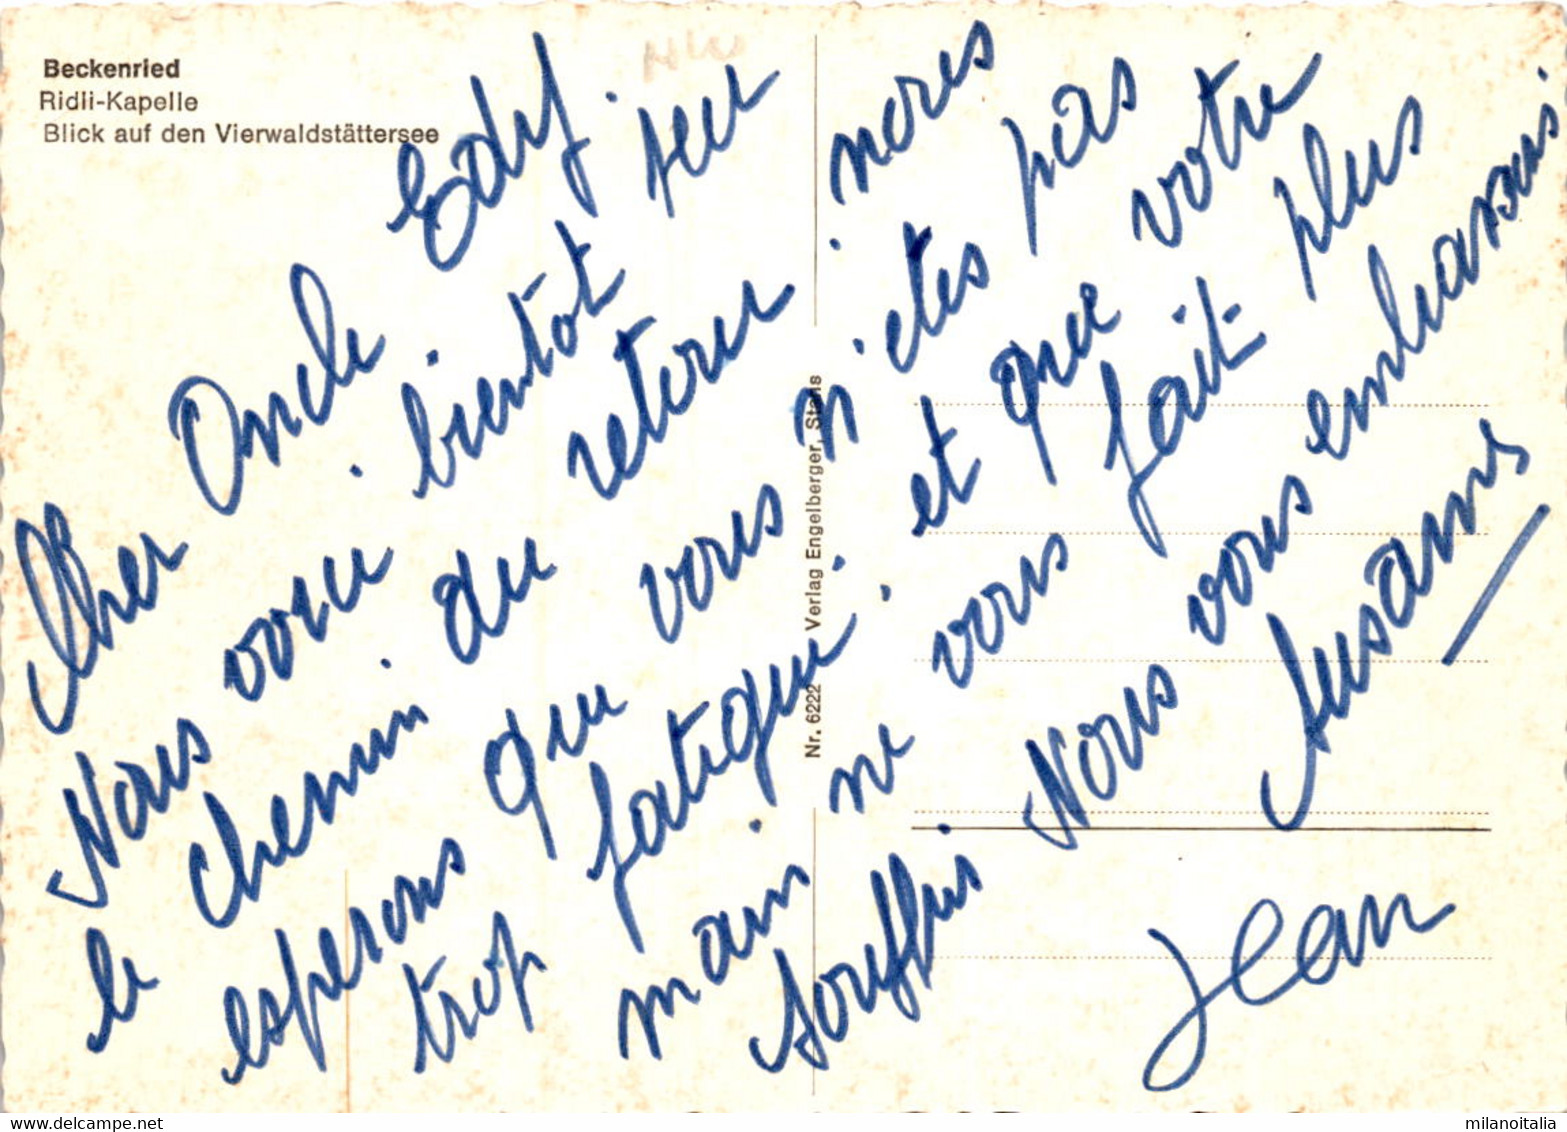 Beckenried
Ridli-Kapelle
Blick auf den Vierwaldstättersee
Nr. 6222 Verlag Engelberger, Stans
Cher Oncle Edy.
Nous voici bientot sur
le chemin du retour. nous
esperons que vous n'etes pas
trop fatigué. et que votre
main ne vous fait plus
souffrir Nous vous embrassons
Susanne
Jean
delcampe.net
milanoitalia